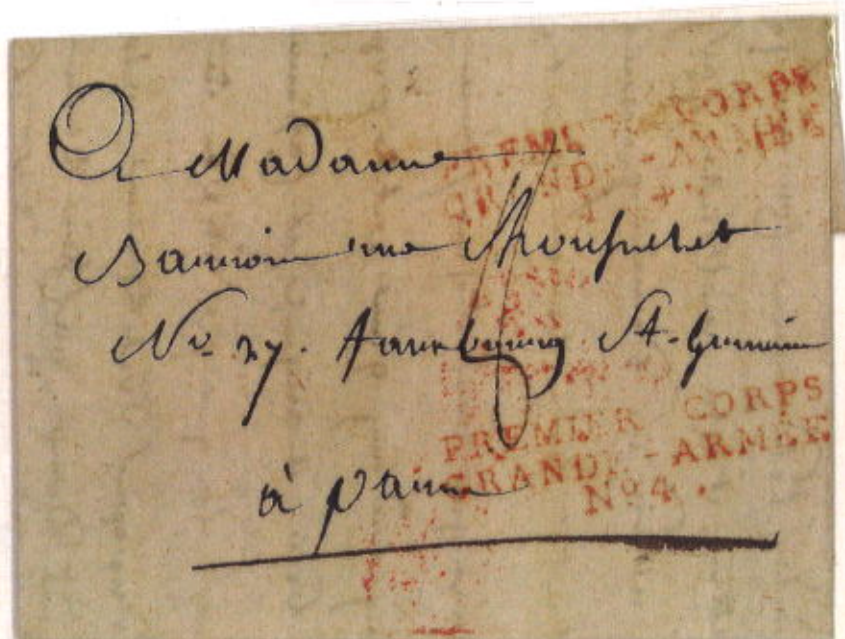 A Madame
rue Mouffetet
No. 27. Fauxbourg St-Germain
à Paris
PREMIER CORPS
GRANDE-ARMÉE
PREMIER CORPS
GRANDE-ARMÉE
No 4.